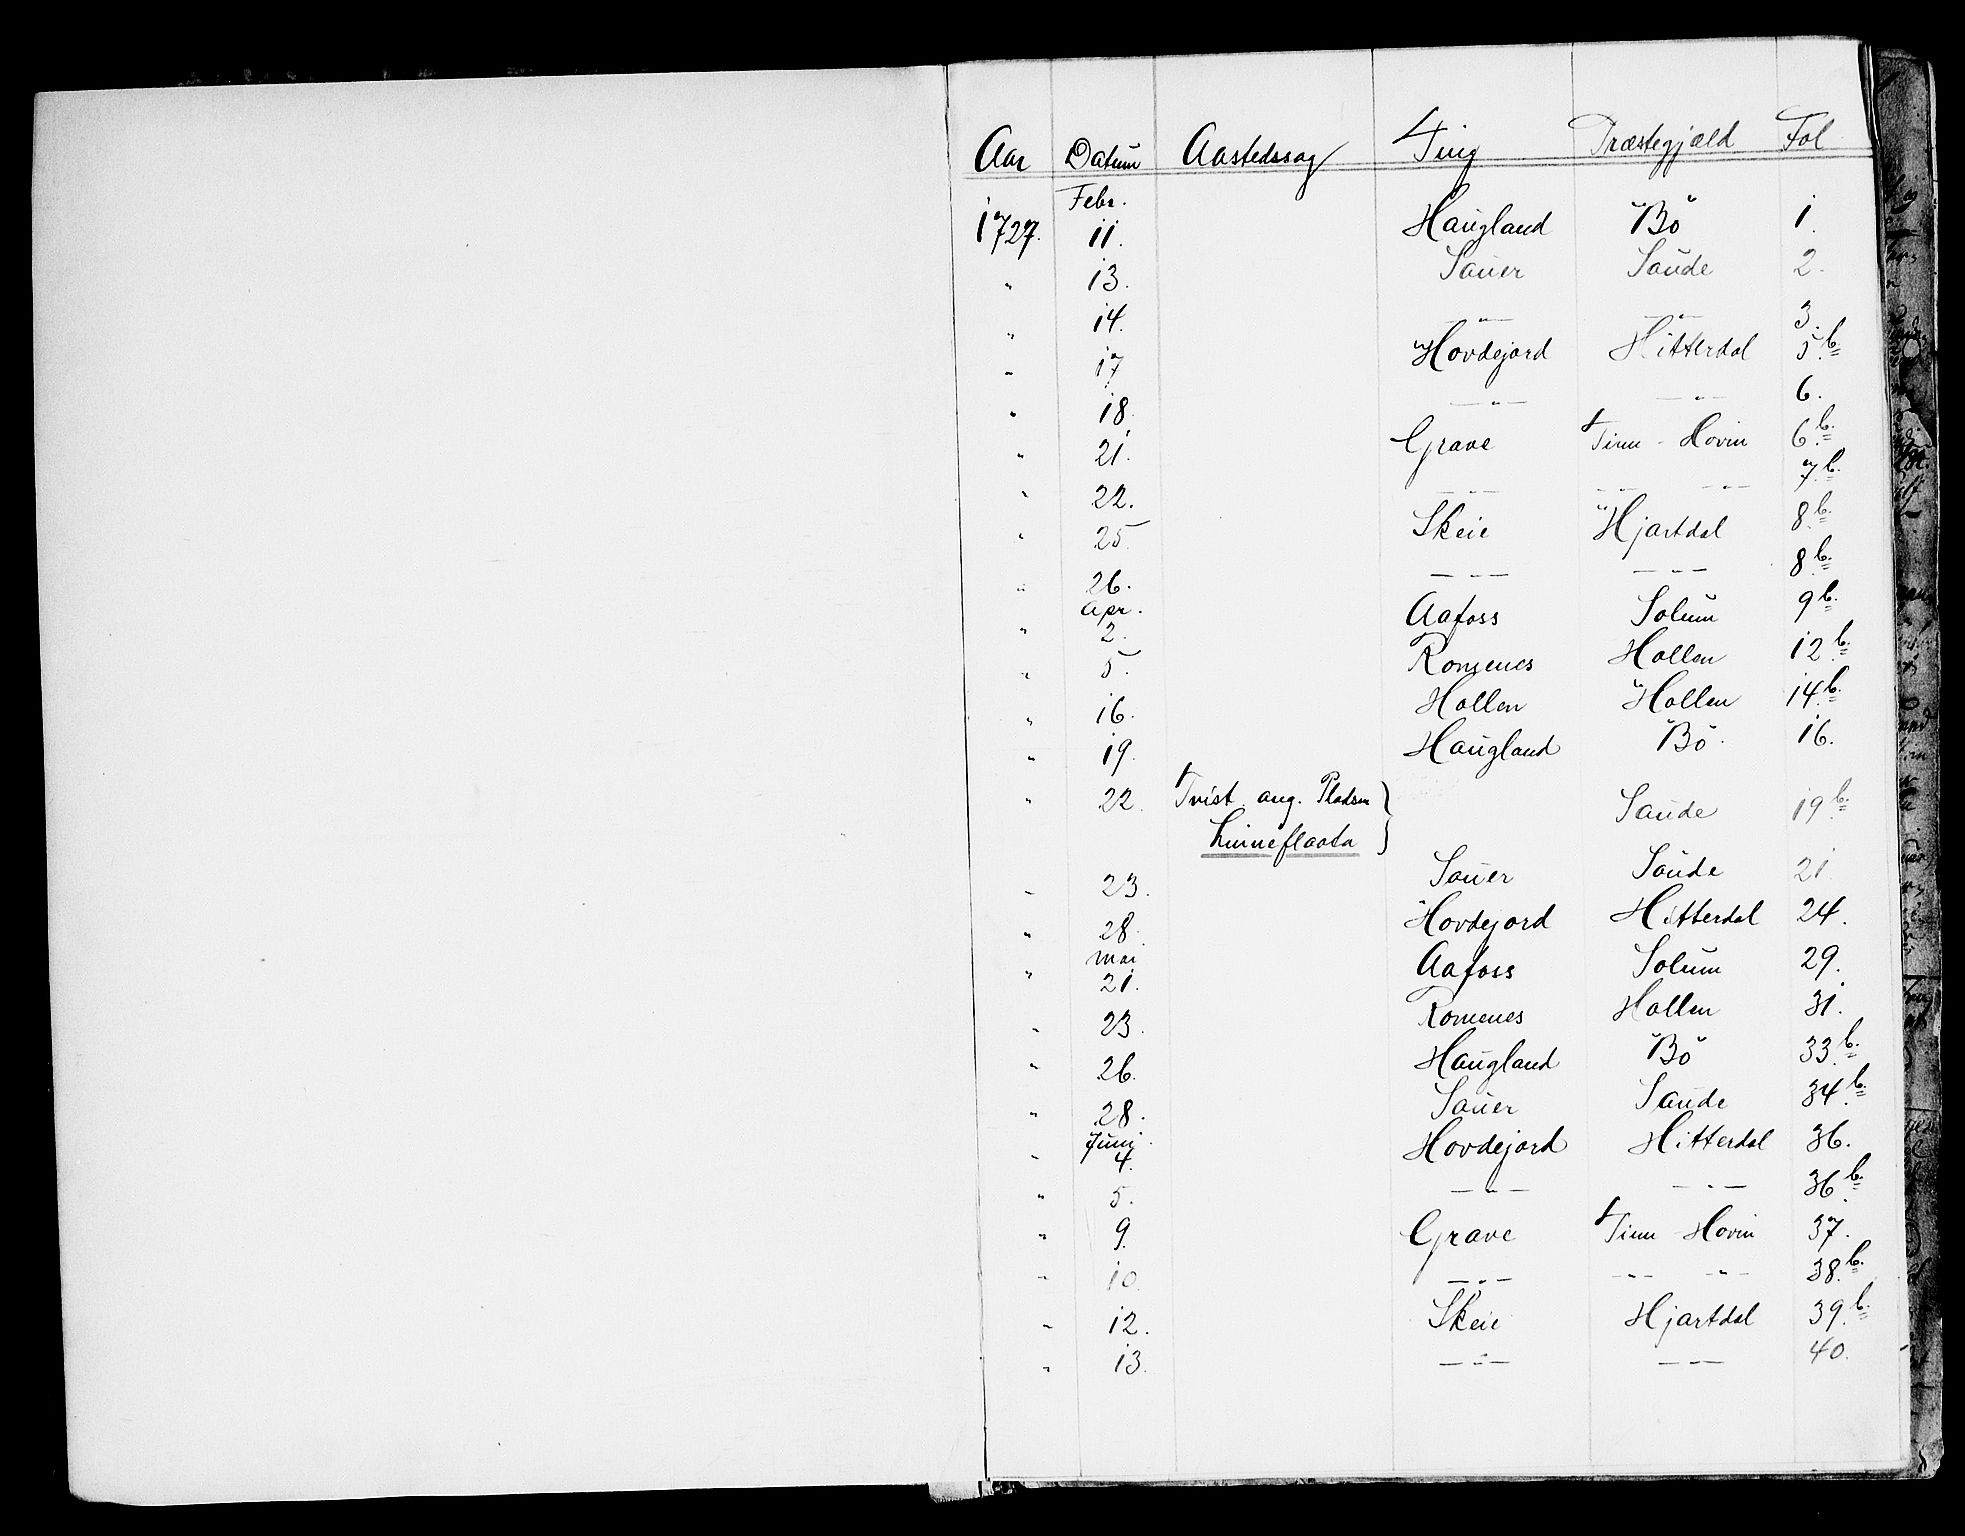 Aar Datum Aastedssag Ting Præstegjæld Fol
Febr.
1727. 11. Haugland Bö 1.
" 13. Sauer Saude 2.
" 14. — " — — " — 3.
" 17 Hovdejord Hitterdal 5.b.
" 18. — " — — " — 6.
" 21. Grave Tinn - Hovin 6b.
" 22. — " — — " — — " — 7b.
" 25. Skeie Hjartdal 8b.
" 26. — " — — " — 8b.
Apr.
" 2. Aafoss Solum 9b.
" 5. Romenes Hollen 12b.
" 16. Hollen Hollen 14b.
" 19. Haugland Bö. 16.
" 22. Tvist ang. Pladsen Saude 19b.
Linneflaata
" 23. Sauer Saude 21.
" 28. Hovdejord Hitterdal 24.
Mai
" 21. Aafoss Solum 29.
" 23. Romenes Hollen 31.
" 26. Haugland Bö 33b.
" 28. Sauer Saude 34b.
Juni
" 4. Hovdejord Hitterdal 36.
" 5. — " — — " — 36b.
" 9. Grave Tinn - Hovin 37.
" 10. — " — — " — — " — 38b.
" 12. Skeie Hjartdal 39b.
" 13. — " — — " — 40.